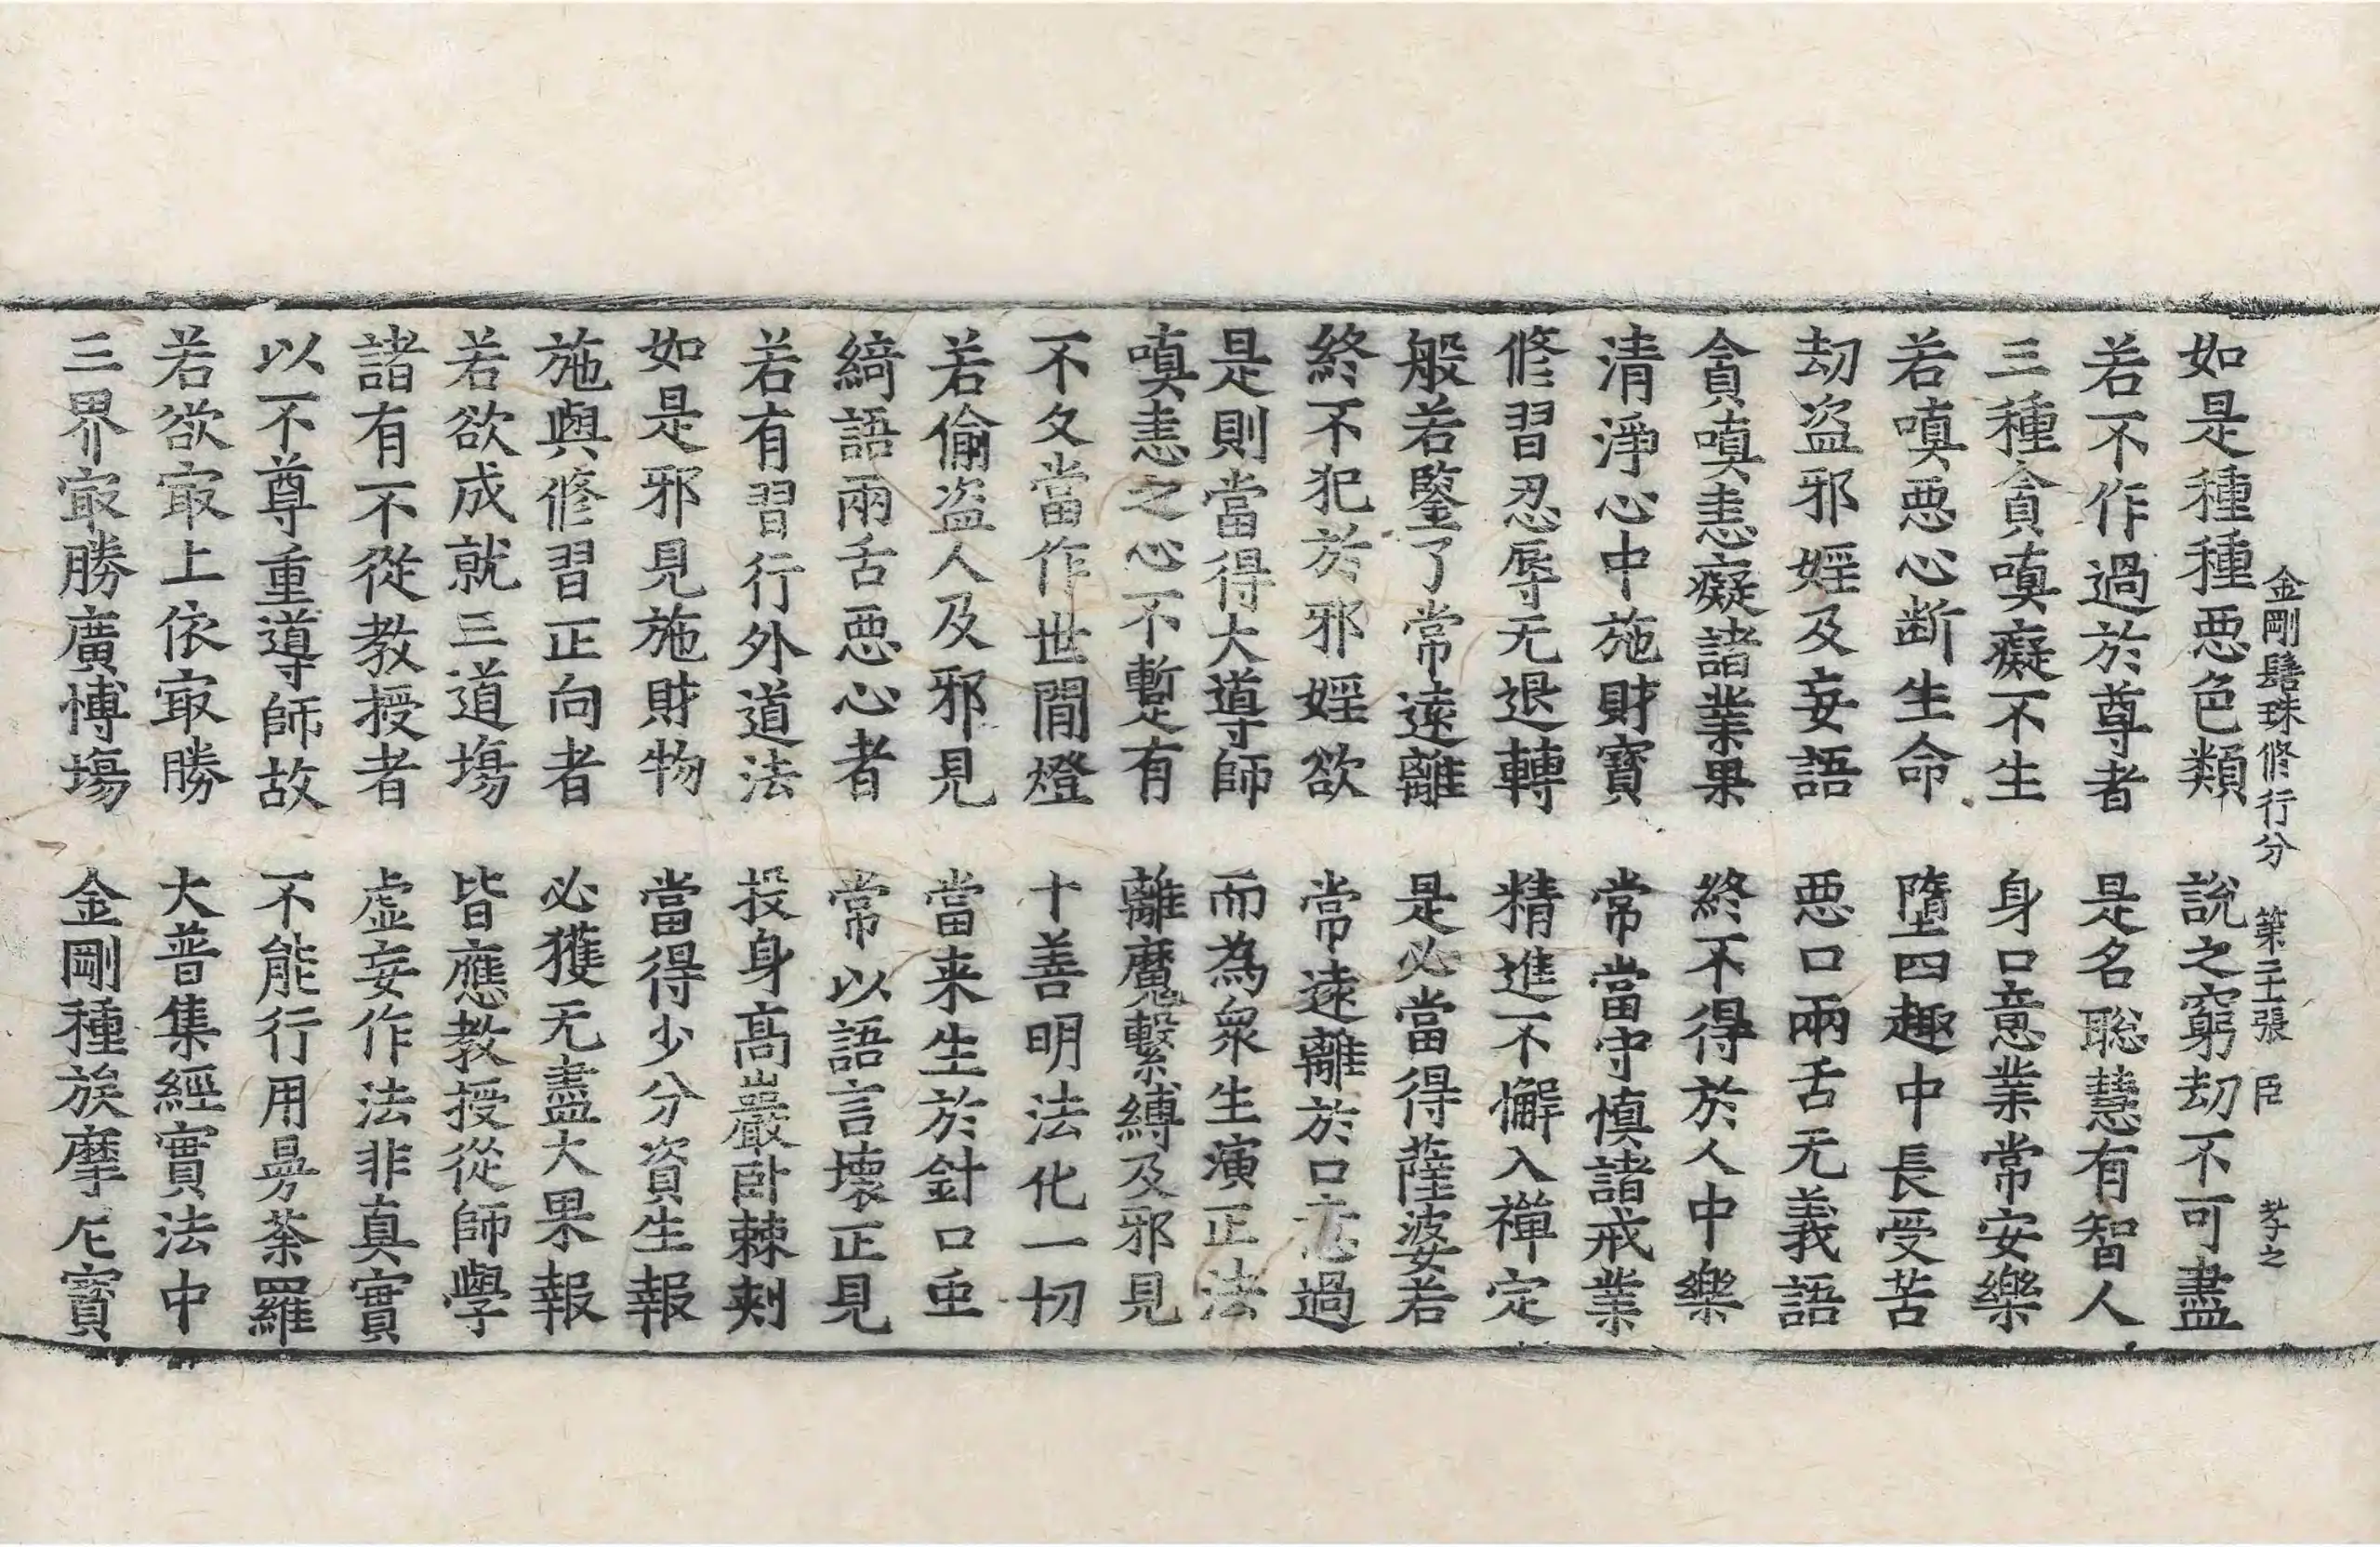 金剛髻珠修行分 第二十張 臣 孝之
如是種種惡色類 說之窮劫不可盡
若不作過於尊者 是名聡慧有智人
三種貪嗔癡不生 身口意業常安樂
若嗔惡心断生命 墮四趣中長受苦
劫盗邪婬及妄語 惡口兩舌无義語
貪嗔恚癡諸業果 終不得於人中樂
清淨心中施財寶 常當守慎諸戒業
修習忍辱无退轉 精進不懈入禪定
般若鑒了常遠離 是必當得薩婆若
終不犯於邪婬欲 常遠離於口恣過
是則當得大導師 而為衆生演正法
嗔恚之心不暫有 離魔繫縛及邪見
不久當作世間燈 十善明法化一切
若偷盗人及邪見 當来生於針口虫
綺語兩舌惡心者 常以語言壞正見
若有習行外道法 投身高巖卧棘刺
如是邪見施財物 當得少分資生報
施與修習正向者 必獲无盡大果報
若欲成就三道場 皆應教授從師學
諸有不從教授者 虛妄作法非真實
以不尊重導師故 不能行用曼荼羅
若欲㝡上依㝡勝 大普集經實法中
三界㝡勝廣博場 金剛種族摩尼寶